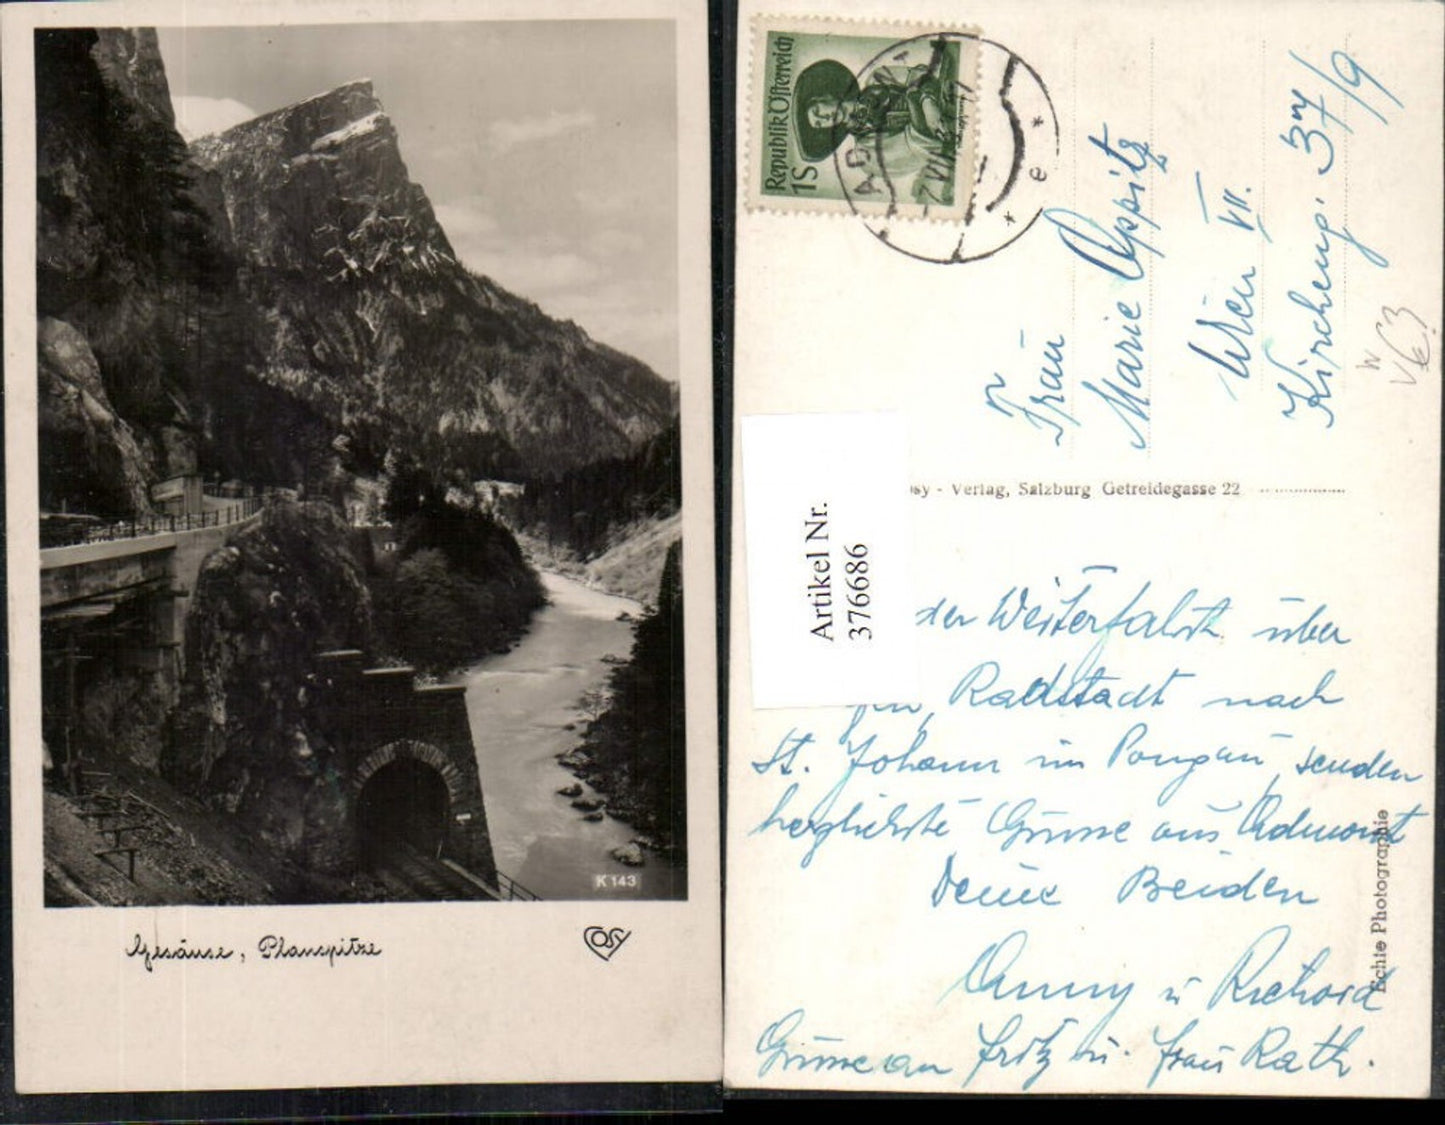 K 143
Gesäuse, Planspitze
COSY
Republik Österreich
1S
Frau
Marie Appitz
Wien VII.
Kircheng. 37/9
W
V63
osy - Verlag, Salzburg Getreidegasse 22
Artikel Nr.
376686
der Weiterfahrt über
Radstadt nach
St. Johann im Pongau, senden
herzlichste Grüsse aus Admont
Deine Beiden
Anny u Richard
Grüsse an Fritz u. Frau Rath.
Echte Photographie